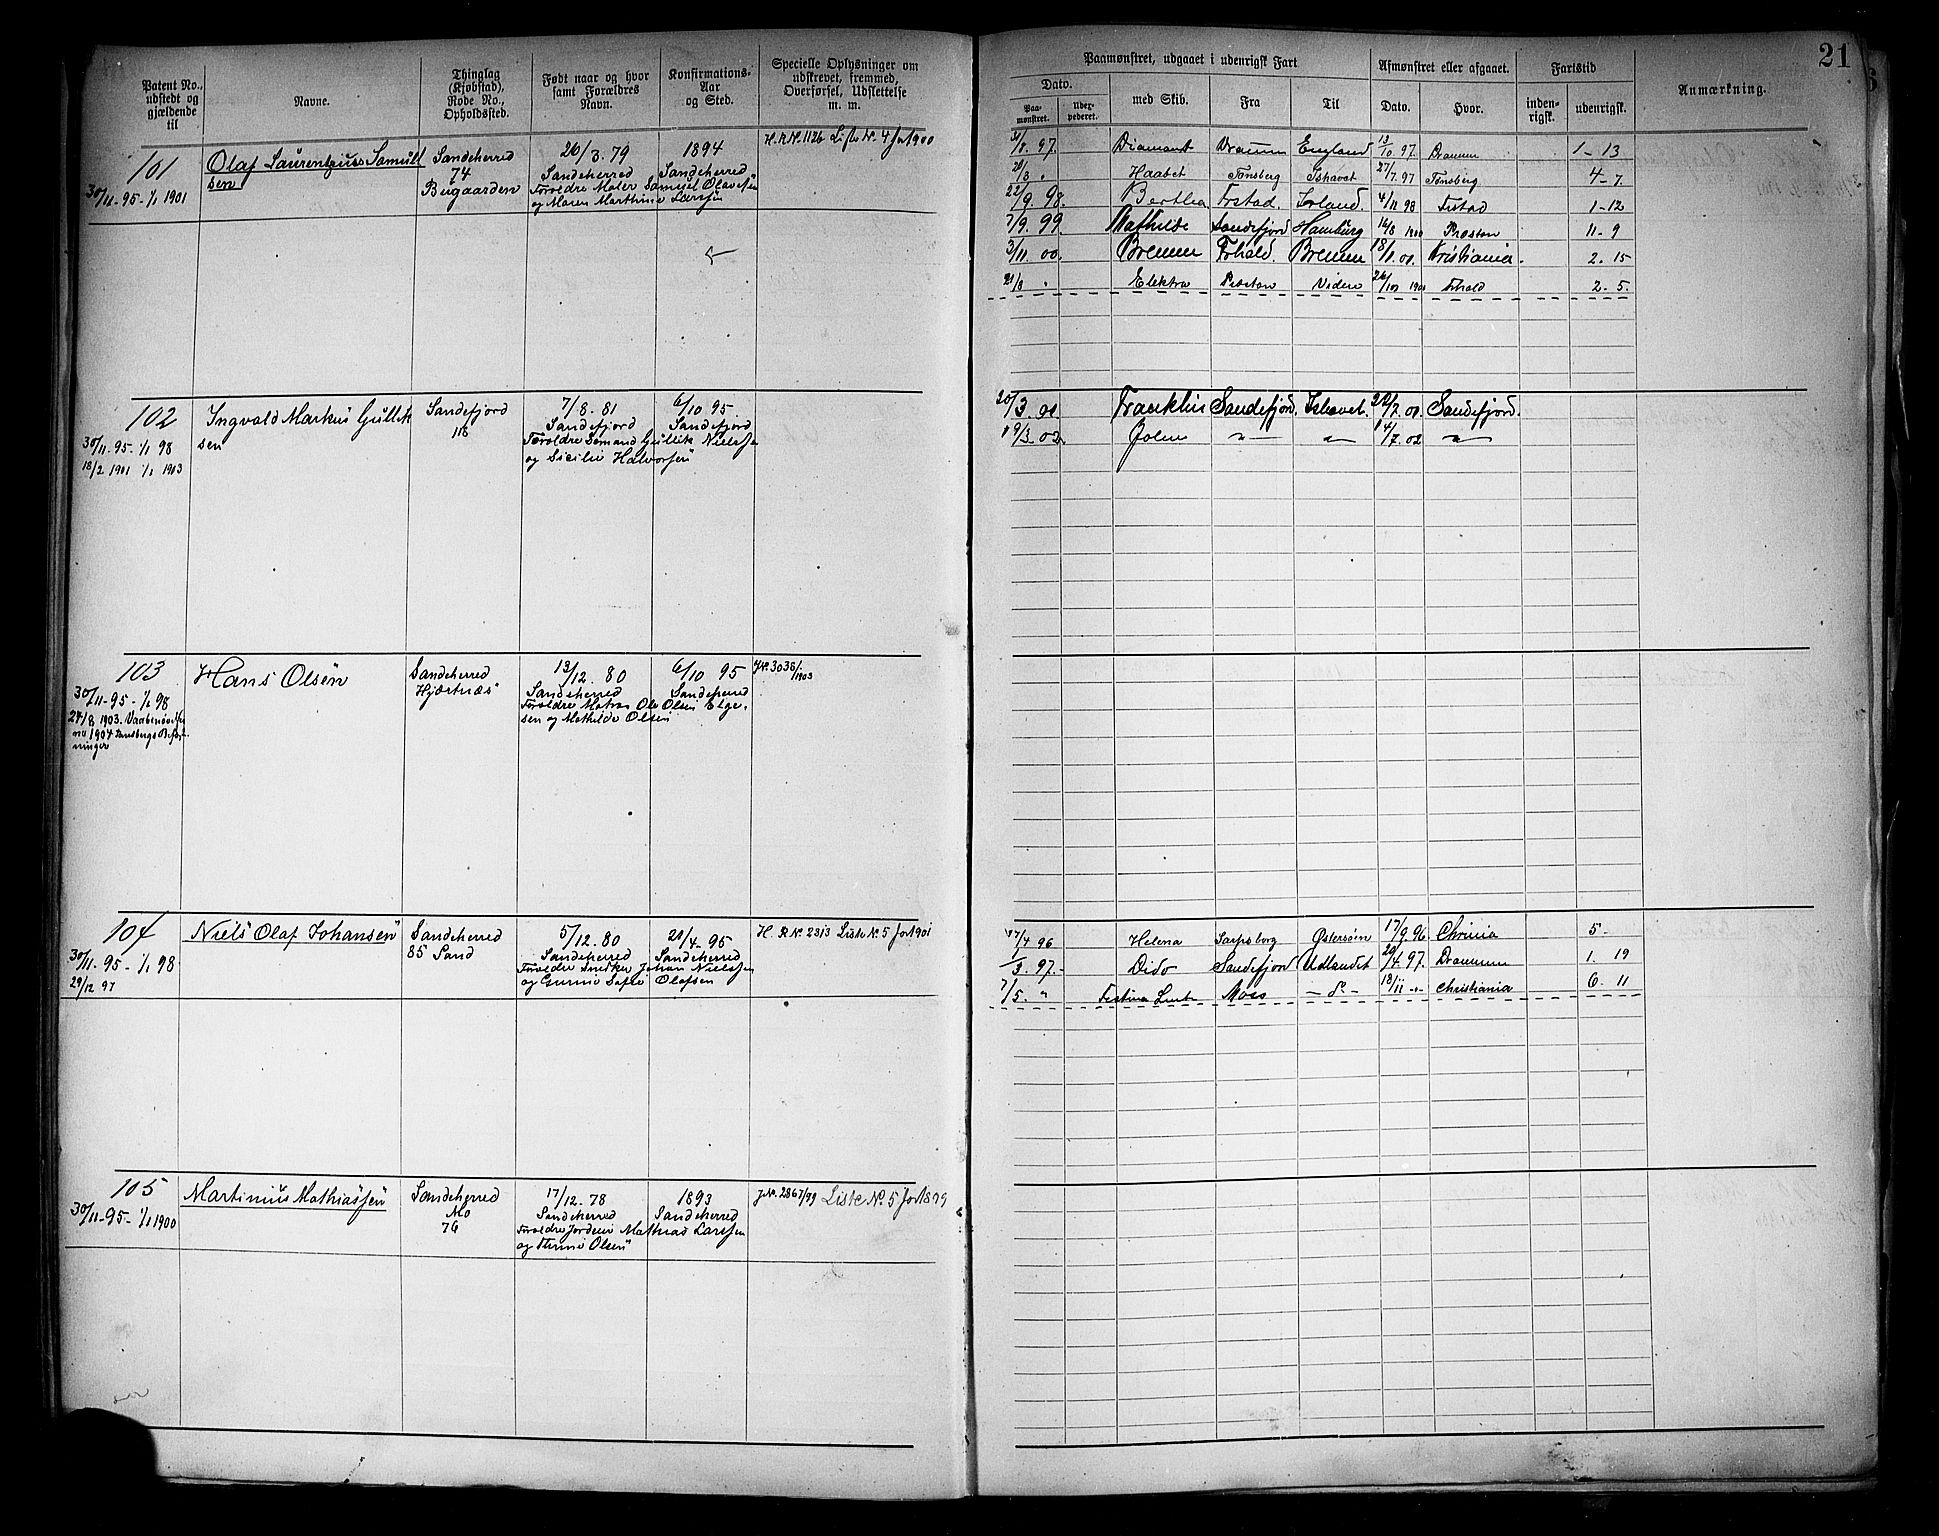 21
Patent No., udstedt og gjældende til
Navne.
Thinglag (Kjøbstad), Rode No., Opholdssted.
Født naar og hvor samt Forældres Navn.
Konfirmations-Aar og Sted.
Specielle Oplysninger om udskrevet, fremmed, Overførsel, Udslettelse m. m.
Paamønstret, udgaaet i udenrigsk Fart
Afmønstret eller afgaaet.
Fartstid
Anmærkning.
Dato.
Paa-mønstret.
med Skib.
Fra
Til
Dato.
Hvor.
inden-rigsk.
udenrigsk.
101
30/11-95-1/1 1901
Olaf Laurentzius Samuel
sen
Sandeherred
74
Bugaarden
26/3.79
Sandeherred
Forældre Maler Samuel Olavesen
og Maren Marthine Larsen
1894
Sandeherred
H.R.N. 1126 Liste N. 4 for 1900
31/8.97. Diamant Drammen England 13/10.97. Drammen 1-13
20/3 " Haabet Tønsberg Ishavet 27/7.97 Tønsberg 4-7
22/9.98. Bertha Frstad. Irland. 4/11 98 Frstad 1-12
7/9.99 Mathilde Sandefjord Hamburg 16/8 1900 Preston 11-9
3/11.00. Bremen Frhald. Bremen 18/1.01. Kristiania. 2.15
21/8 " Elektra Preston Viden Frhald 2.5.
102
30/11-95-1/1 98
18/2 1901 1/1 1903
Ingvald Markus Gullik
sen
Sandefjord
118
7/8.81
Sandefjord
Forældre Sømand Gullik Nielssen
og Sicilie Halvorsen
6/10 95.
Sandefjord
20/3 01 Franklin Sandefjord. Ishavet. 22/7.01. Sandefjord.
19/3.02 14/7.02
103
30/11-95-1/1 98
24/8 1903.
Hans Olsen
Sandeherred
Hjertnæs
13/12.80
Sandeherred
Forældre Matros Ole Olsen Elge-
sen og Mathilde Olsen
6/10 95
Sandeherred
J.N. 3036/1903
104
30/11-95-1/1 98
29/12 97
Niels Olaf Johansen
Sandeherred
85 Sand
5/12.80
Sandeherred
Forældre Snekker Johan Nielssen
og Gurine Sofie Olafsen
21/4-95
Sandeherred
H.R.N. 2313 Liste N. 5 for 1901
17/4 96 Helena Sarpsborg Østersøen 17/9.96 Chrnia 5-
1/3.97.- Dido Sandefjord Udlandet 20/4.97. Drammen 1. 19
7/5. " Festina Lente Moss - do - 18/11 -"- Christiania 6. 11
105
30/11-95-1/1 1900
Martinius Mathiassen
Sandeherred
Mo
76
17/12.78
Sandeherred
Forældre Jordeier Mathias Larssen
og Olsen
1893
Sandeherred
J.N. 2867/99 Liste N. 5 for 1899